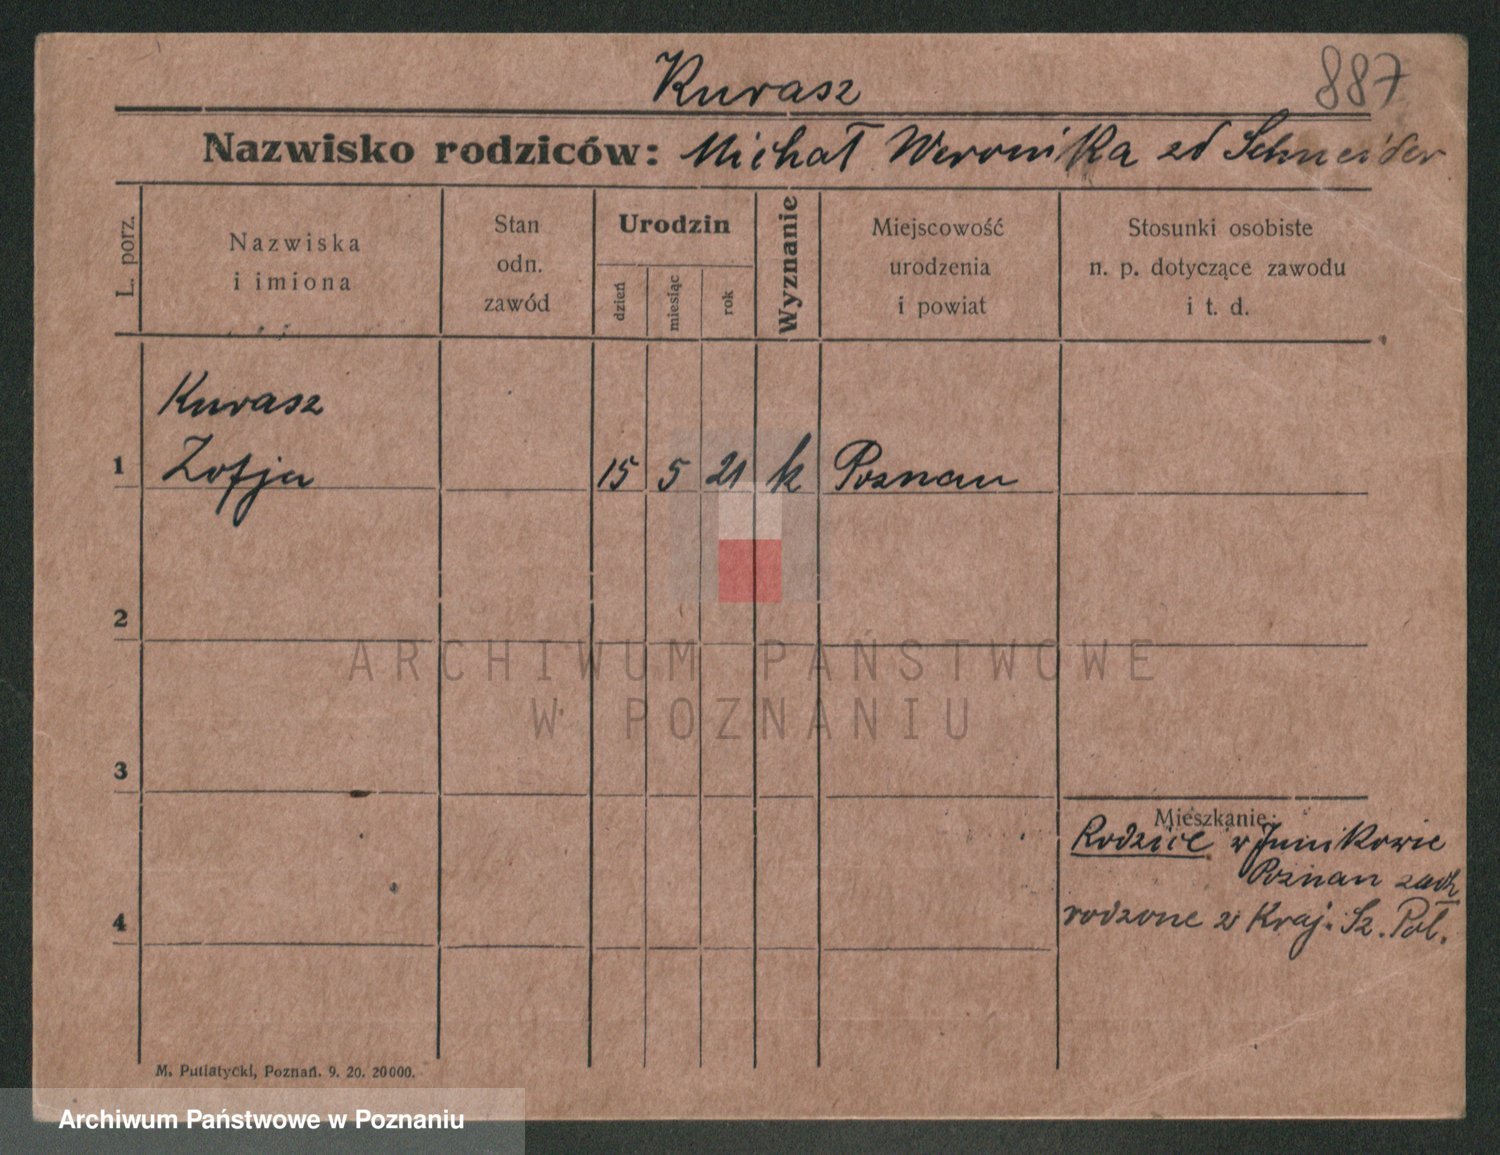 Kurasz 887
Nazwisko rodziców: Michał Weronika zd Schneider
L. porz.
Nazwiska
i imiona
Stan
odn.
zawód
Urodzin
dzień
miesiąc
rok
Wyznanie
Miejscowość
urodzenia
i powiat
Stosunki osobiste
n. p. dotyczące zawodu
i t. d.
Kurasz
1 Zofja 15 5 21 k Poznan
2
3
4
Mieszkanie:
Rodzice w Junikowie
Poznan zach
rodzone w Kraj. Sz. Pol.
M. Putiatycki, Poznań. 9. 20. 20000.
ARCHIWUM PAŃSTWOWE
W POZNANIU
Archiwum Państwowe w Poznaniu